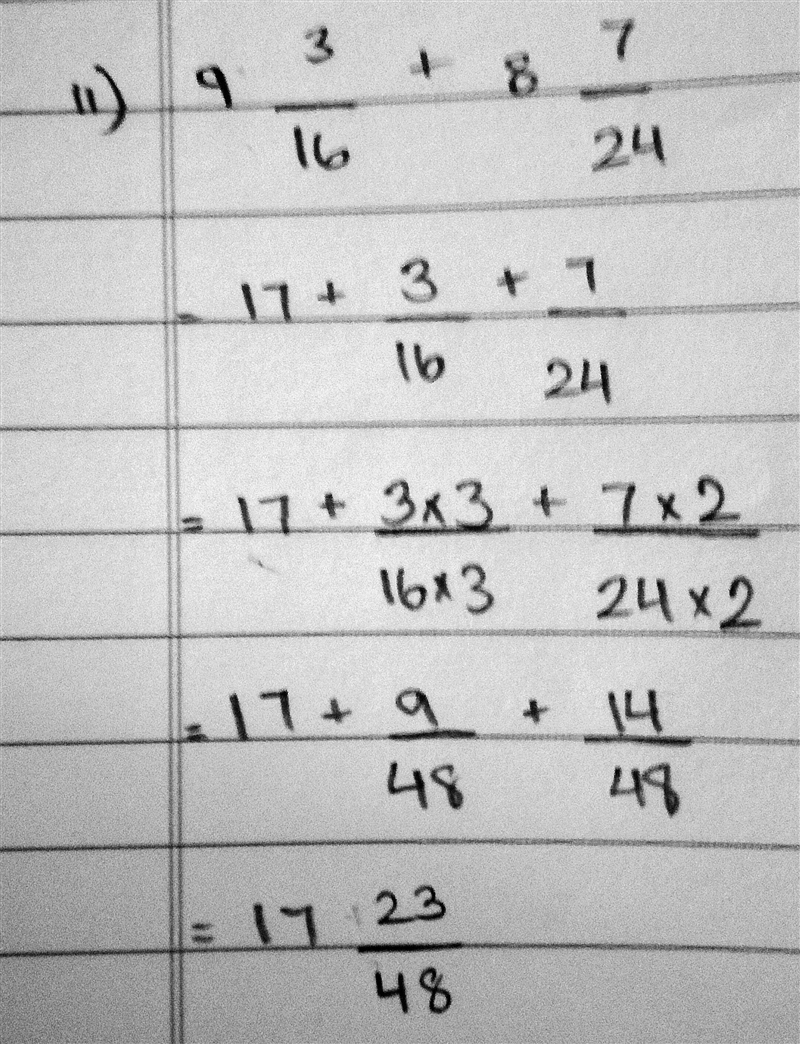 11) 9 3/16 + 8 7/24
= 17 + 3/16 + 7/24
= 17 + 3×3/16×3 + 7×2/24×2
= 17 + 9/48 + 14/48
= 17 23/48